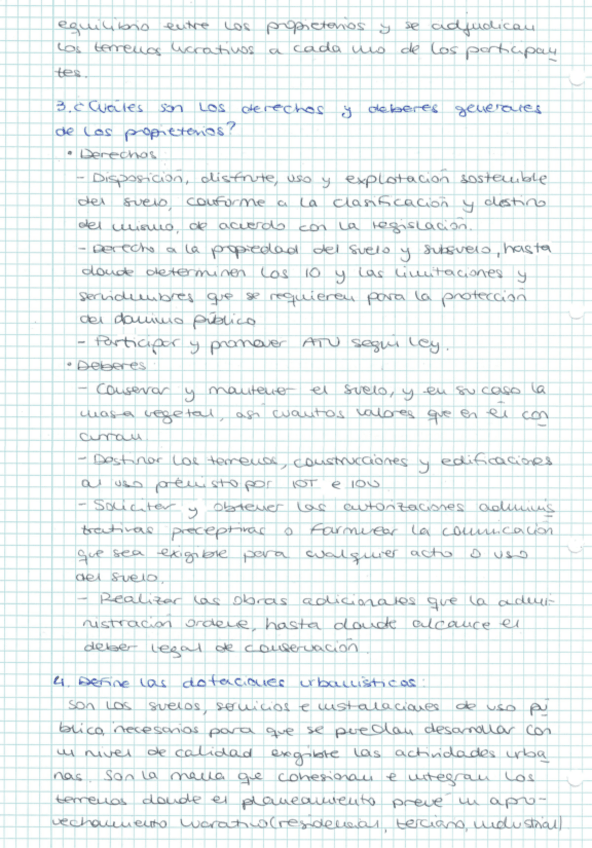 equilibrio entre los propietarios y se adjudican
los terrenos lucrativos a cada uno de los participan
tes.
3. ¿Cuáles son los derechos y deberes generales
de los propietarios?
• Derechos
- Disposición, disfrute, uso y explotación sostenible
del suelo, conforme a la clasificación y destino
del mismo, de acuerdo con la legislación.
- Derecho a la propiedad del suelo y subsuelo, hasta
donde determinen las IO y las limitaciones y
servidumbres que se requieren para la protección
del dominio público
- Participar y promover ATU según ley.
• Deberes
- Conservar y mantener el suelo, y en su caso la
masa vegetal, así cuantos valores que en él con
curran
- Destinar los terrenos, construcciones y edificaciones
al uso previsto por IOT e IOU
- Solicitar y obtener las autorizaciones adminis
trativas preceptivas o formular la comunicación
que sea exigible para cualquier acto o uso
del suelo.
- Realizar las obras adicionales que la admi-
nistración ordene, hasta donde alcance el
deber legal de conservación
4. Define las dotaciones urbanísticas:
Son los suelos, servicios e instalaciones de uso pú
blico, necesarios para que se puedan desarrollar con
un nivel de calidad exigible las actividades urba
nas. Son la malla que cohesionan e integran los
terrenos donde el planeamiento prevé un apro-
vechamiento lucrativo (residencial, terciario, industrial)